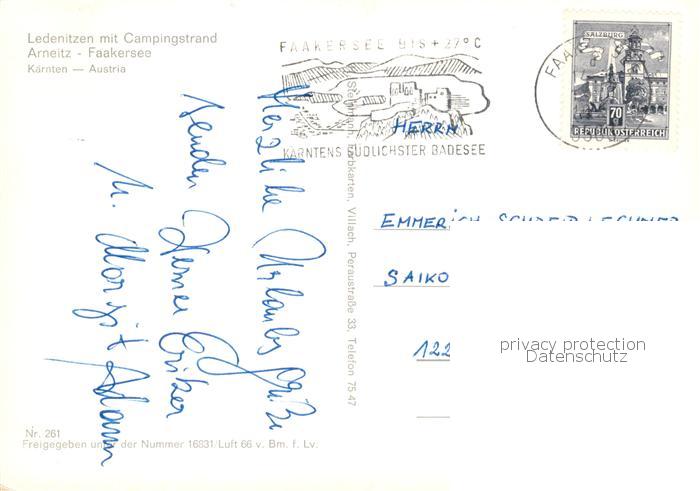 Ledenitzen mit Campingstrand
Arneitz - Faakersee
Kärnten — Austria
FAAKERSEE BIS + 27° C
KÄRNTENS SÜDLICHSTER BADESEE
FAA
SALZBURG
70
REPUBLIK ÖSTERREICH
HERRN
EMMERICH
SAIKO
122
Herzliche Urlaubsgrüße
senden
u.
Farbkarten, Villach, Peraustraße 33, Telefon 75 47
privacy protection
Datenschutz
Nr. 261
Freigegeben unter der Nummer 16831/Luft 66 v. Bm. f. Lv.